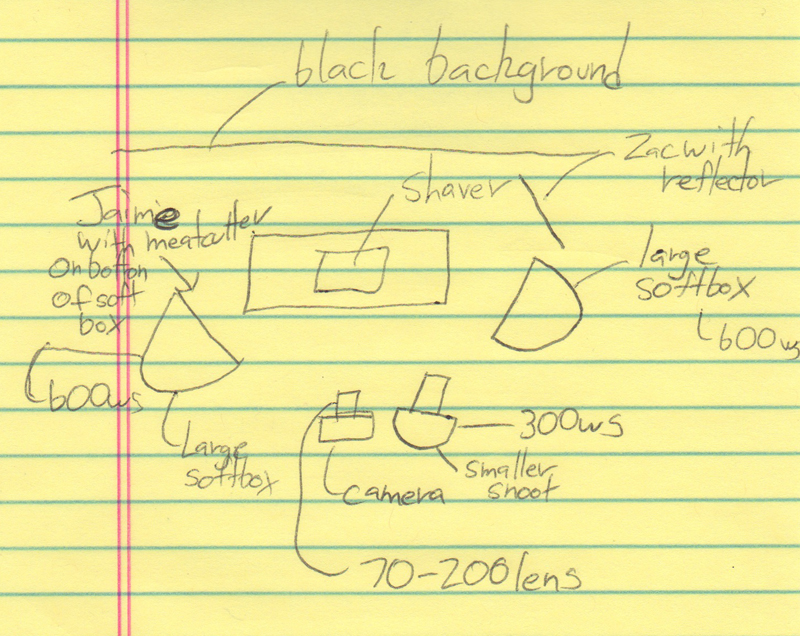 black background
Zac with
reflector
Shaver
Jaimie
with meatcutter
On botton
Of soft
box
large
softbox
600ws
600ws
Large
softbox
300ws
smaller
snoot
camera
70-200 lens